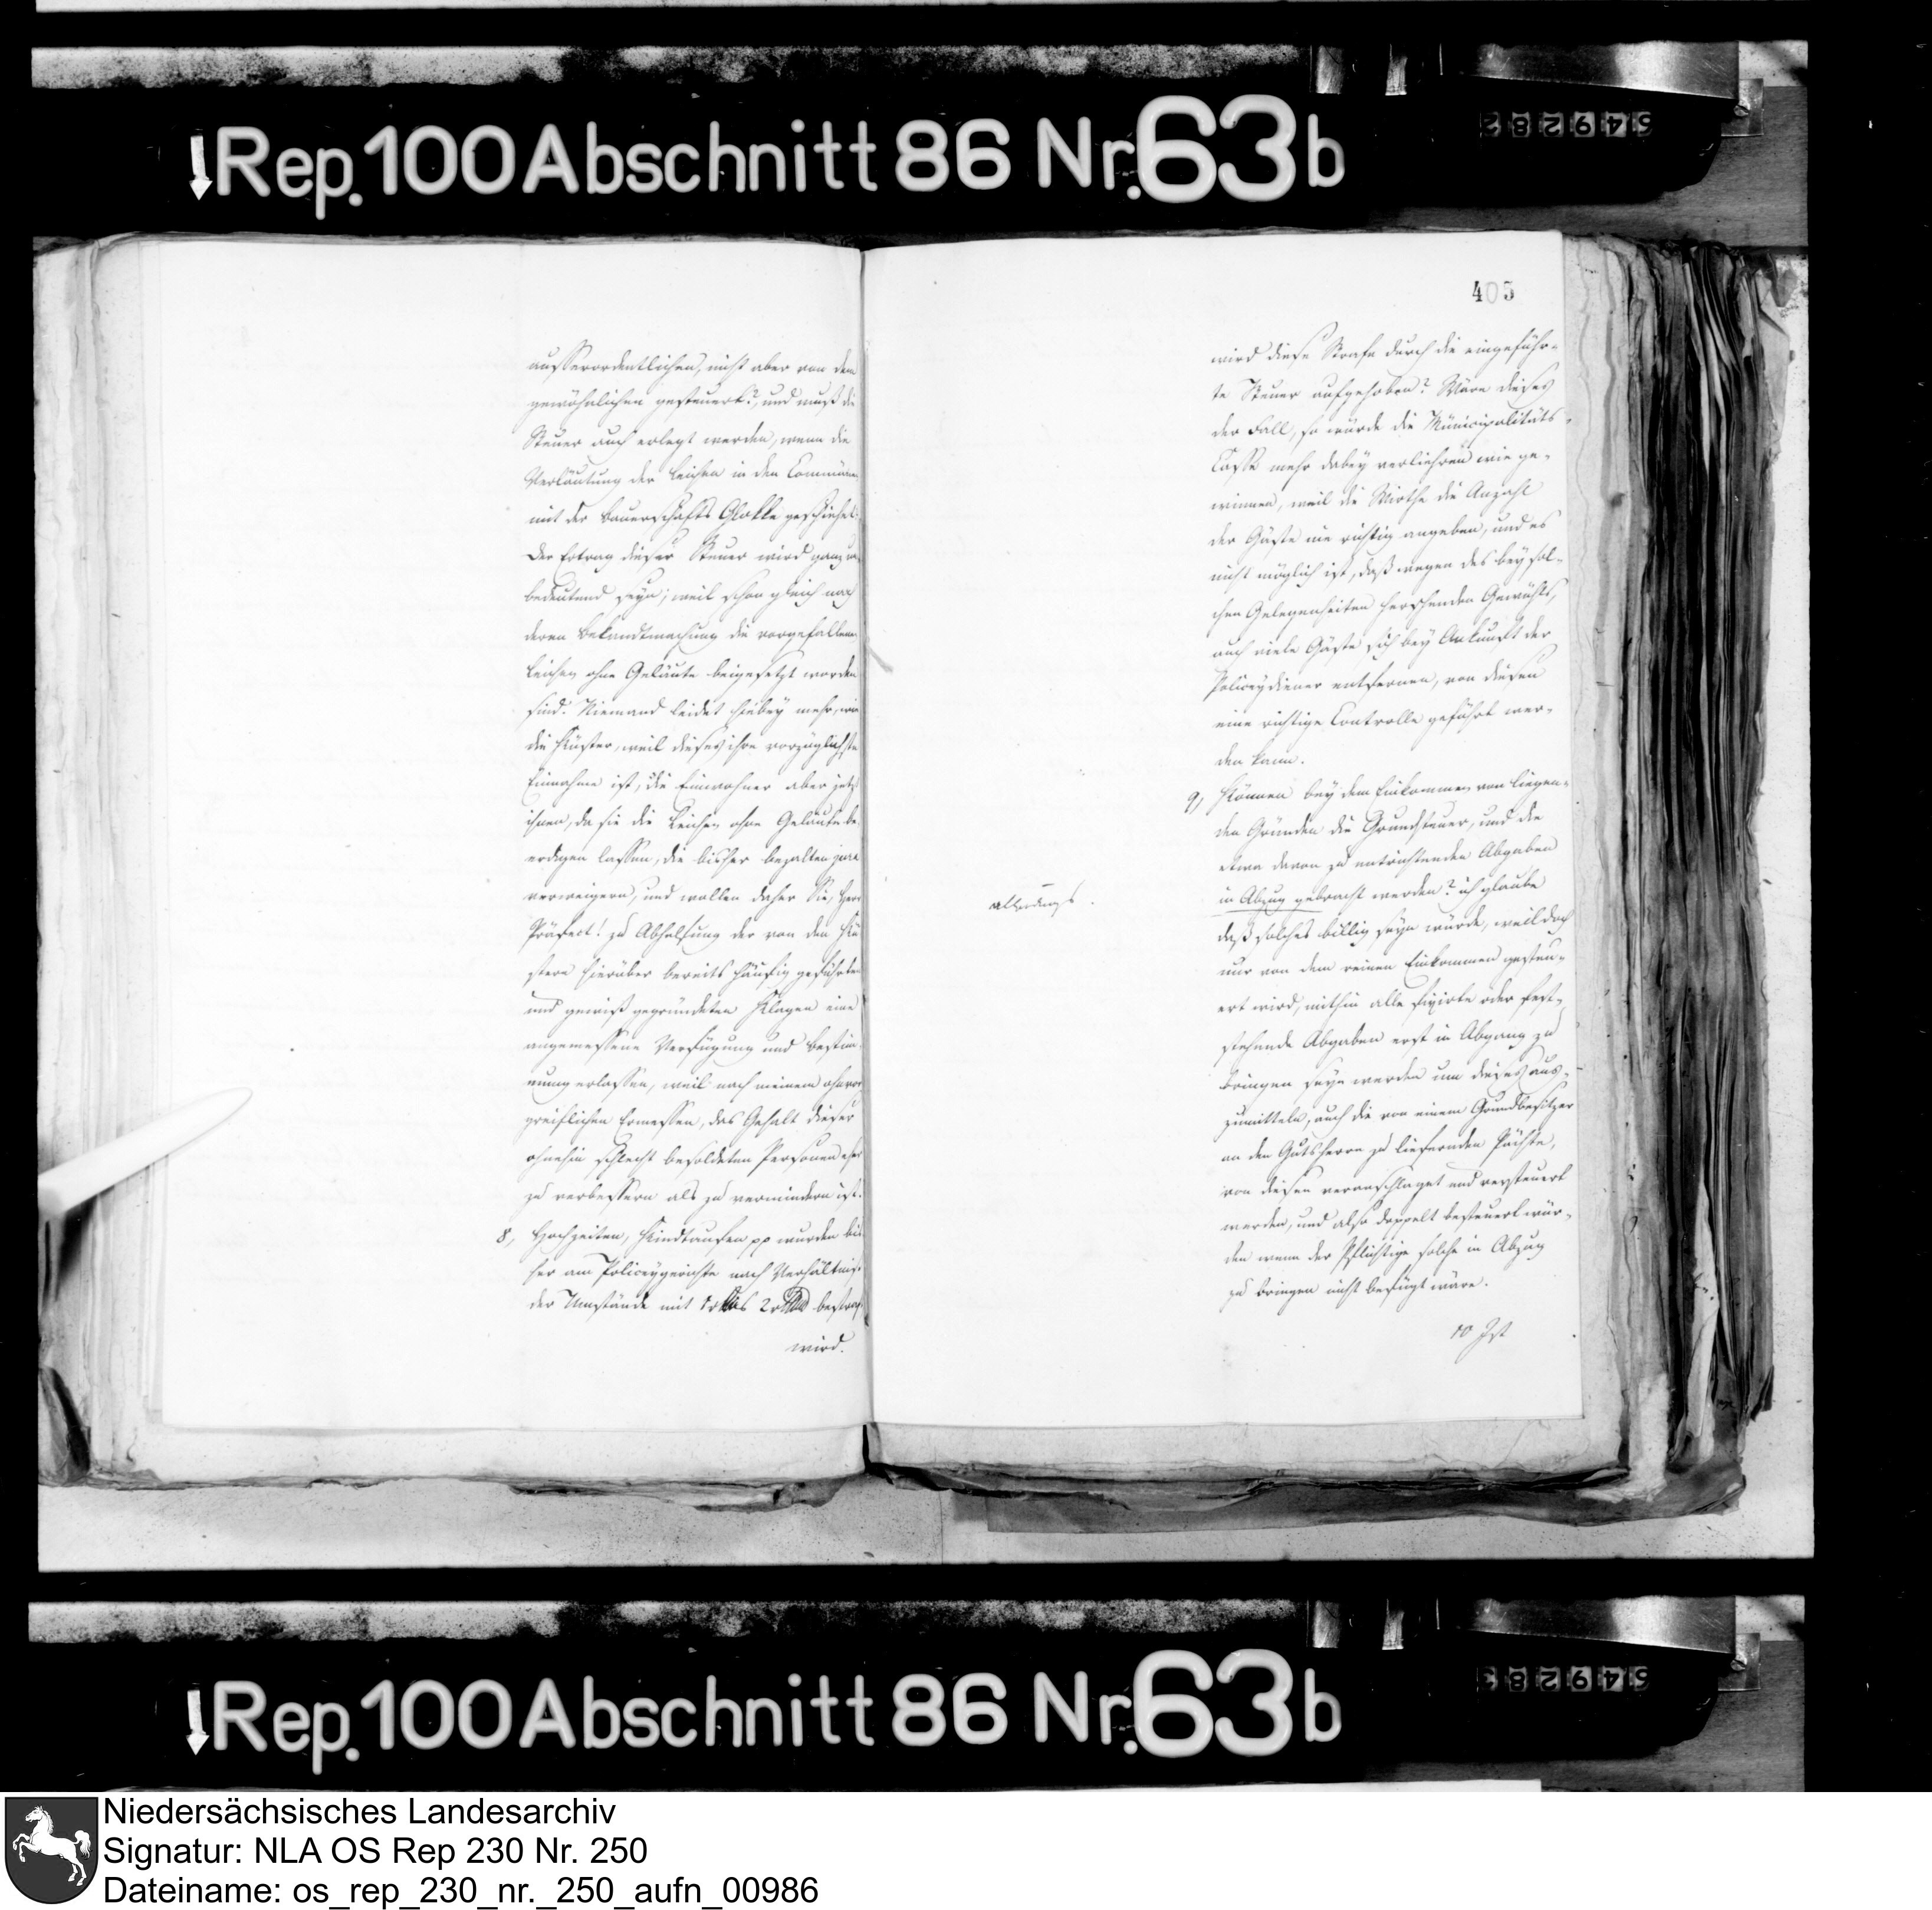 Rep. 100 Abschnitt 86 Nr. 63b
549282
ausserordentlichen, nicht aber von dem
gewöhnlichen gesteuert?, und muß die
Steuer auch erlegt werden, wenn die
Verläutung der Leichen in den Communen
mit der Bauerschafts Glokke geschiehet?
Der Ertrag dieser Steuer wird ganz un
bedeutend seyn; weil schon gleich nach
deren Bekandtmachung die vorgefallenen
Leichen ohne Geläute beigesetzt worden
sind. Niemand leidet hiebey mehr, wie
die Küster, weil dieses ihre vorzüglichste
Einnahme ist, die Einwohner aber jetzt
ihnen, da sie die Leichen ohne Geläute be
erdigen lassen, die bisher bezalten jura
verweigern, und wollen daher Sie, Herr
Präfect! zu Abhelfung der von den Kü
stern hierüber bereits häufig geführten
und gewiß gegründeten Klagen eine
angemessene Verfügung und Bestim
mung erlassen, weil nach meinem ohnvor
greiflichen Ermessen, das Gehalt dieser
ohnehin schlecht besoldeten Personen eher
zu verbessern als zu vermindern ist.
8, Hochzeiten, Kindtaufen pp wurden bis
her am Policeygerichte nach Verhältniß
der Umstände mit 1 bis 2 bestraft
wird.
405
wird diese Strafe durch die eingeführ-
te Steuer aufgehoben? Wäre dieses
der Fall, so würde die Municipalitäts-
Casse mehr dabey verliehren wie ge-
winnen, weil die Wirthe die Anzahl
der Gäste nie richtig angeben, und es
nicht möglich ist, daß wegen des bey sol-
chen Gelegenheiten herschenden Gewühls,
auch viele Gäste sich bey Ankunft der
Policeydiener entfernen, von diesen
eine richtige Controlle geführt wer-
den kann.
9, Können bey dem Einkommen von liegen-
den Gründen die Grundsteuer, und die
etwa davon zu entrichtenden Abgaben
in Abzug gebracht werden? ich glaube
allerdings.
daß solches billig seyn würde, weil doch
nur von dem reinen Einkommen gesteu-
ert wird, mithin alle fixirte oder fest-
stehende Abgaben erst in Abgang zu
bringen seyn werden um dieses aus-
zumitteln, auch die von einem Grundbesitzer
an den Gutsherrn zu liefernden Pächte,
von diesen veranschlaget und versteuert
werden, und also doppelt besteuert wür-
den wenn der Pflichtige solche in Abzug
zu bringen nicht befugt wäre.
10 Ist
Rep. 100 Abschnitt 86 Nr. 63b
549283
Niedersächsisches Landesarchiv
Signatur: NLA OS Rep 230 Nr. 250
Dateiname: os_rep_230_nr._250_aufn_00986